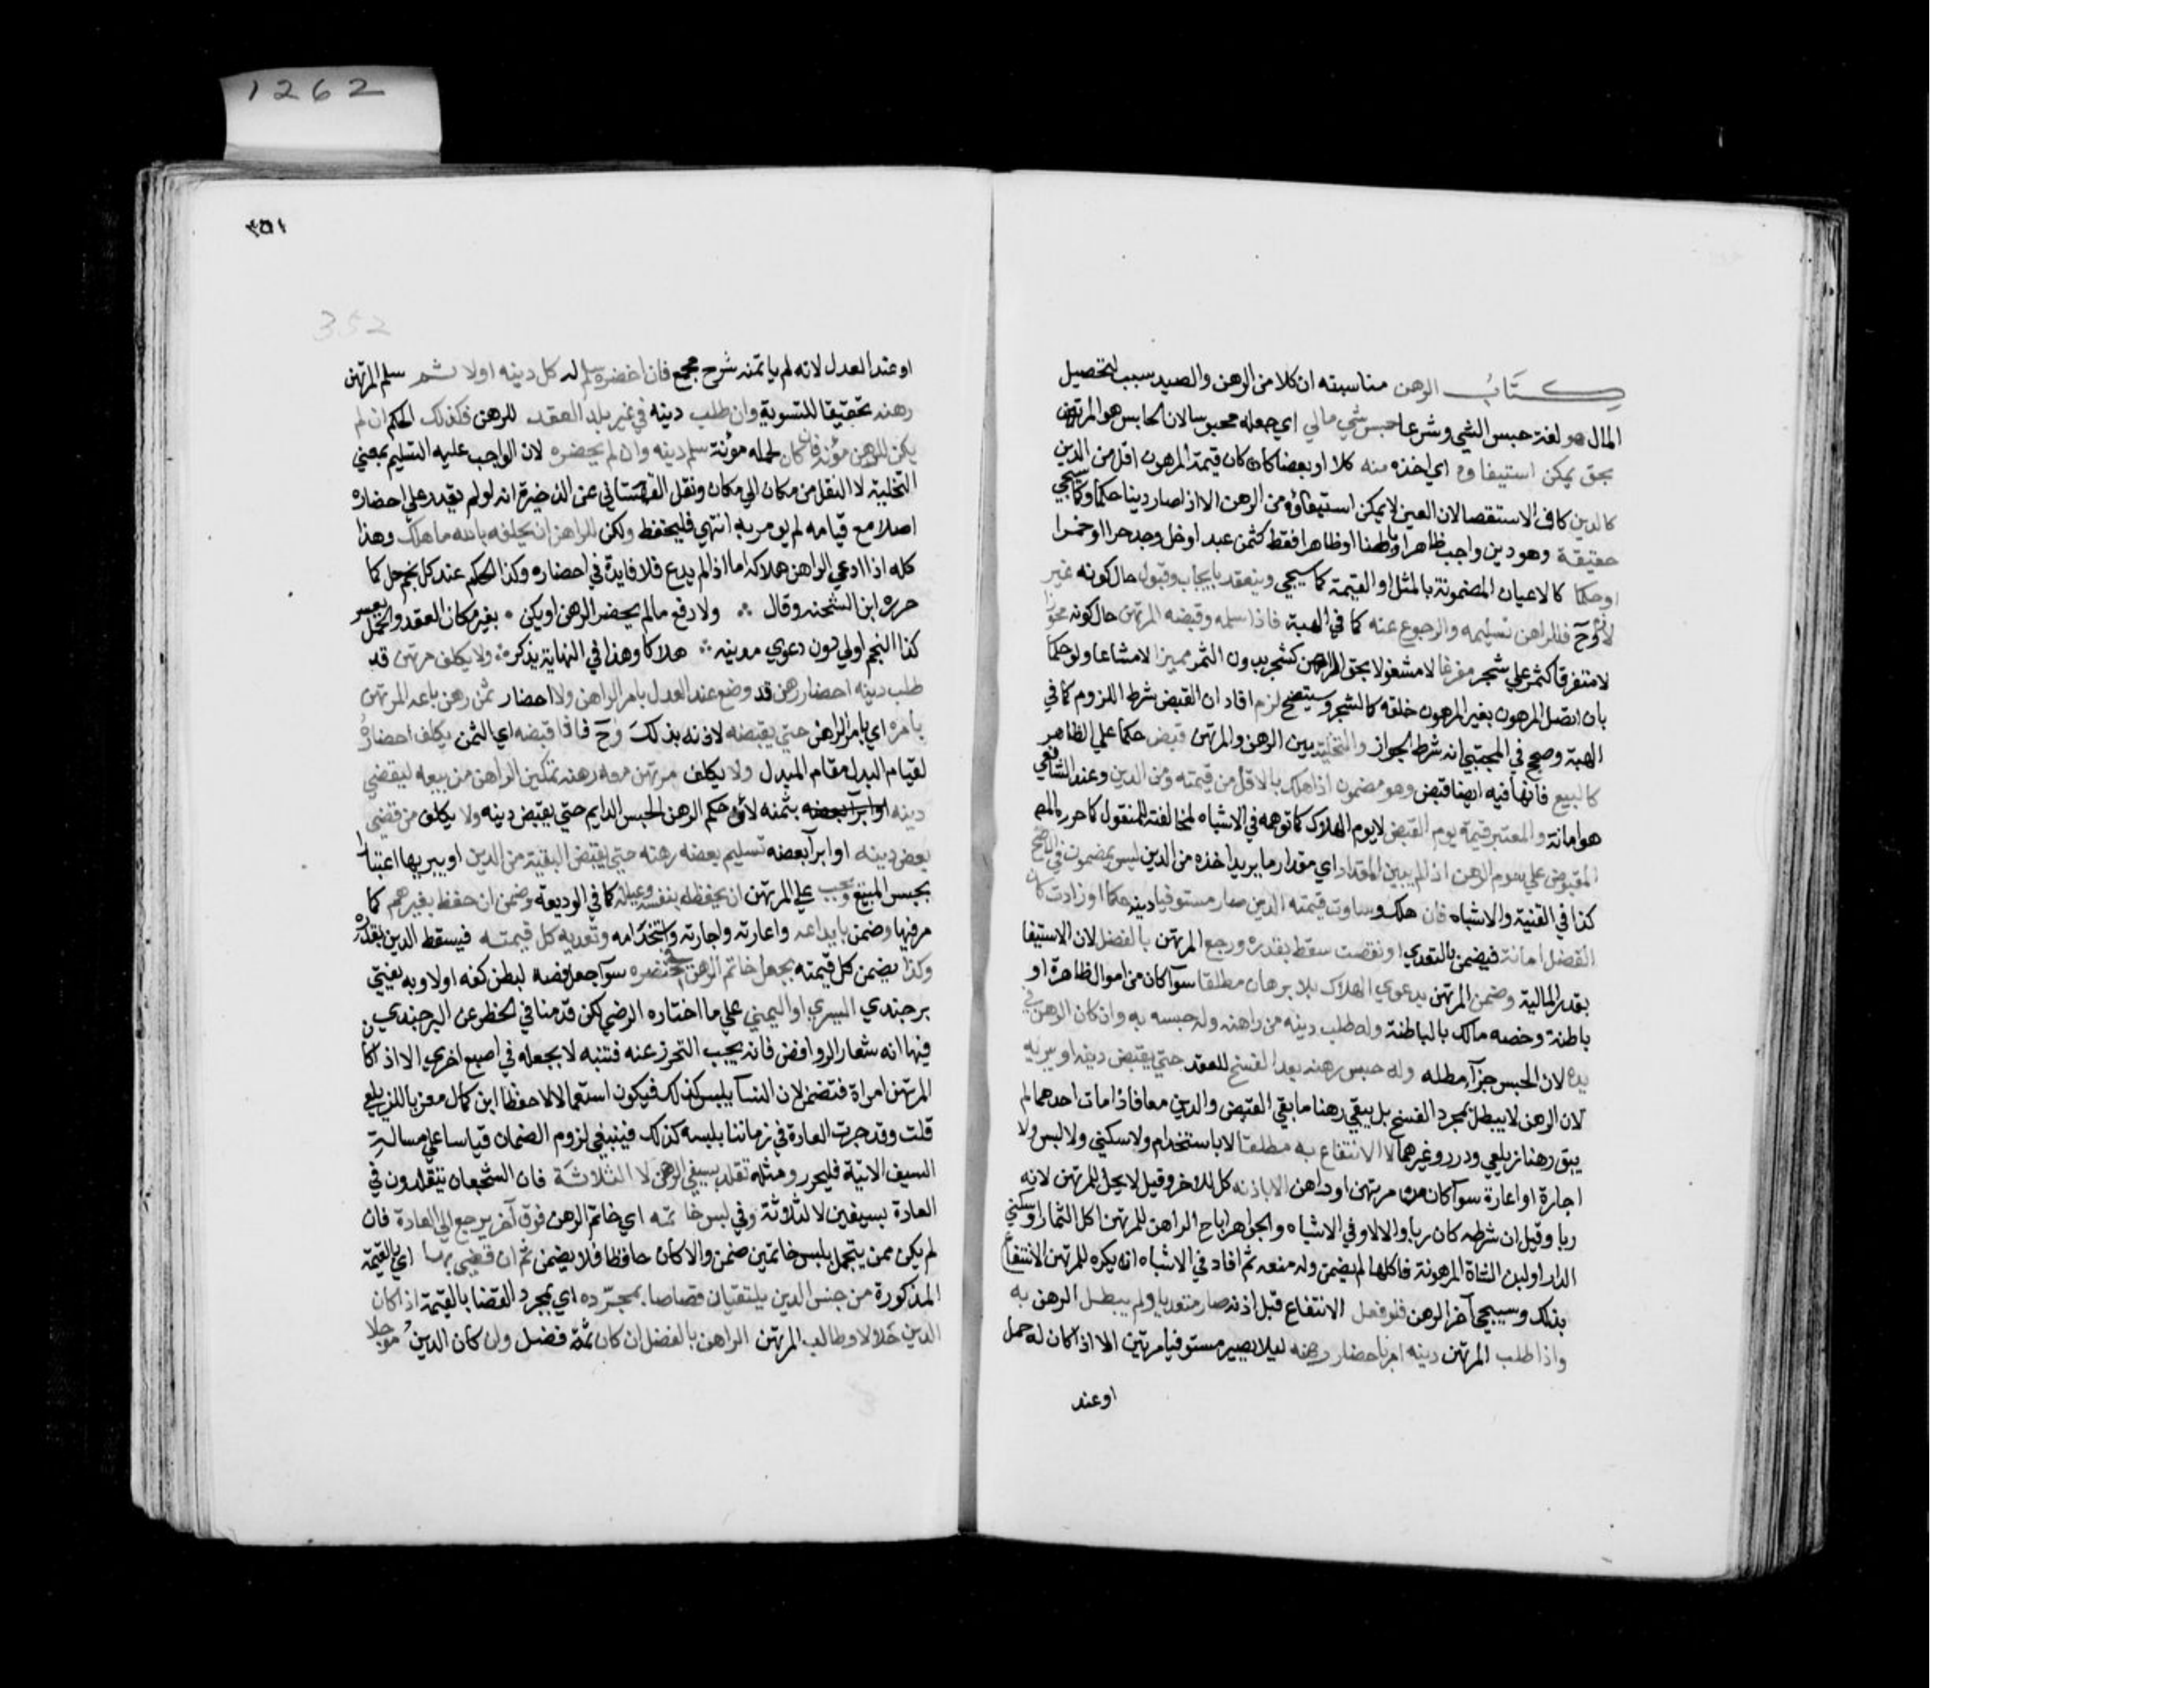 1262
كتاب الرهن مناسبته ان كلا من الرهن والصيد سبب لتحصيل
المال هو لغة حبس الشي وشرعا حبس شي مالي اي جعله محبوسا لان الحابس هو المرتهن
بحق يمكن استيفاوه اي اخذه منه كلا او بعضا كان كان قيمة المرهون اقل من الدين
كالدين كاف الاستقصا لان العين لا يمكن استيفاؤه من الرهن الا اذا صار دينا حكما وكما سيجي
حقيقة وهو دين واجب ظاهرا وباطنا او ظاهرا فقط كثمن عبد او خل وجد حرا او خمرا
او حكما كالاعيان المضمونة بالمثل او القيمة كما سيجي وينعقد بايجاب وقبول حال كونه غير
لازم وح فللراهن تسليمه والرجوع عنه كما في الهبة فاذا سلمه وقبضه المرتهن حال كونه محوزا
لا متفرقا كثمر علي شجر مفرغا لا مشغولا بحق الراهن كشجر بدون الثمر مميزا لا مشاعا ولو حكما
بان اتصل المرهون بغير المرهون خلقة كالشجر وسيتضح لزم افاد ان القبض شرط اللزوم كما في
الهبة وصحح في المجتبي انه شرط الجواز والتخلية بين الرهن والمرتهن قبض حكما علي الظاهر
كالبيع فانها فيه ايضا قبض وهو مضمون اذا هلك بالاقل من قيمته ومن الدين وعند الشافعي
هو امانة والمعتبر قيمته يوم القبض لا يوم الهلاك كما توهمه في الاشباه لمخالفته للمنقول كما حرره المص
المقبوض علي سوم الرهن اذا لم يبين المقدار اي مقدار ما يريد اخذه من الدين ليس بمضمون في الاصح
كذا في القنية والاشباه فان هلك وساوت قيمته الدين صار مستوفيا دينه حكما او زادت كان
الفضل امانة فيضمن بالتعدي او نقصت سقط بقدره ورجع المرتهن بالفضل لان الاستيفا
بقدر المالية وضمن المرتهن بدعوي الهلاك بلا برهان مطلقا سوآ كان من اموال ظاهرة او
باطنة وخصه مالك بالباطنة وله طلب دينه من راهنه وله حبسه به وان كان الرهن في
يده لان الحبس جزآء مطله وله حبس رهنه بعد الفسخ للعقد حتي يقبض دينه او يبريه
لان الرهن لا يبطل بمجرد الفسخ بل يبقي رهنا ما بقي القبض والدين معا فاذا مات احدهما لم
يبق رهنا زيلعي ودرر وغيرهما لا الانتفاع به مطلقا لا باستخدام ولا سكني ولا لبس ولا
اجارة او اعارة سوآ كان من مرتهن او راهن الا باذنه كل للاخر وقيل لا يحل للمرتهن لانه
ربا وقيل ان شرطه كان ربا والا لا وفي الاشباه والجواهر اباح الراهن للمرتهن اكل الثمار او سكني
الدار او لبن الشاة المرهونة فاكلها لم يضمن وله منعه ثم افاد في الاشباه انه يكره للمرتهن الانتفاع
بذلك وسيجي آخر الرهن فلو فعل الانتفاع قبل اذنه صار متعديا ولم يبطل الرهن به
واذا طلب المرتهن دينه امر باحضار رهنه ليلا يصير مستوفيا مرتين الا اذا كان له حمل
او عند
٣٥١
352
او عند العدل لانه لم ياتمنه شرح مجمع فان احضره سلم له كل دينه اولا ثم سلم المرتهن
رهنه تحقيقا للتسوية وان طلب دينه في غير بلد العقد للرهن فكذلك الحكم ان لم
يكن للرهن مؤنة فان كان لحمله مؤنة سلم دينه وان لم يحضره لان الواجب عليه التسليم بمعني
التخلية لا النقل من مكان الي مكان ونقل القهستاني عن الذخيرة انه لو لم يقدر علي احضاره
اصلا مع قيامه لم يومر به انتهي فليحفظ ولكن للراهن ان يحلفه بالله ما هلك وهذا
كله اذا ادعي الراهن هلاكه اما اذا لم يدع فلا فايدة في احضاره وكذا الحكم عند كل نجم حل كما
حرره ابن الشحنه وقال ∴ ولا دفع ما لم يحضر الرهن او يكن • بغير مكان العقد والحمل يعسر
كذا النجم اولي دون دعوي مدينه ∴ هلاكا وهذا في النهاية يذكر ∴ ولا يكلف مرتهن قد
طلب دينه احضار رهن قد وضع عند العدل بامر الراهن ولا احضار ثمن رهن باعه المرتهن
بامره اي بامر الراهن حتي يقبضه لاذنه بذلك وح فاذا قبضه اي الثمن يكلف احضاره
لقيام البدل مقام المبدل ولا يكلف مرتهن معه رهنه تمكين الراهن من بيعه ليقضي
دينه او ابرآ بعضه بثمنه لان حكم الرهن الحبس الدايم حتي يقبض دينه ولا يكلف من قضي
بعض دينه او ابرآ بعضه تسليم بعضه رهنه حتي يقبض البقية من الدين او يبريها اعتبارا
بحبس المبيع ويجب علي المرتهن ان يحفظه بنفسه وعياله كما في الوديعة وضمن ان حفظ بغيرهم كما
مر فيها وضمن بايداعه واعارته واجارته واستخدامه وتعديه كل قيمته فيسقط الدين بقدره
وكذا يضمن كل قيمته بجعل خاتم الرهن في خنصره سوآ جعل فصه لبطن كفه اولا وبه يفتي
برجندي اليسري او اليمني علي ما اختاره الرضي لكن قدمنا في الحظر عن البرجندي
فيها انه شعار الروافض فانه يجب التحرز عنه فتنبه لا بجعله في اصبع اخري الا اذا كان
المرتهن امراة فتضمن لان النسآ يلبسن كذلك فيكون استعمالا لا حفظا ابن كمال معزيا للزيلعي
قلت وقد جرت العادة في زماننا بلبسه كذلك فينبغي لزوم الضمان قياسا علي مسالة
السيف الاتية فليحرر ومثله تقلد بسيفي الرهن لا الثلاثة فان الشجعان يتقلدون في
العادة بسيفين لا الثلاثة وفي لبس خاتمه اي خاتم الرهن فوق آخر يرجع الي العادة فان
لم يكن ممن يتجمل بلبس خاتمين ضمن والا كان حافظا فلا يضمن ثم ان قضي بها اي بالقيمة
المذكورة من جنس الدين يلتقيان قصاصا بمجرده اي بمجرد القضا بالقيمة اذا كان
الدين حالا وطالب المرتهن الراهن بالفضل ان كان ثمة فضل وان كان الدين موجلا